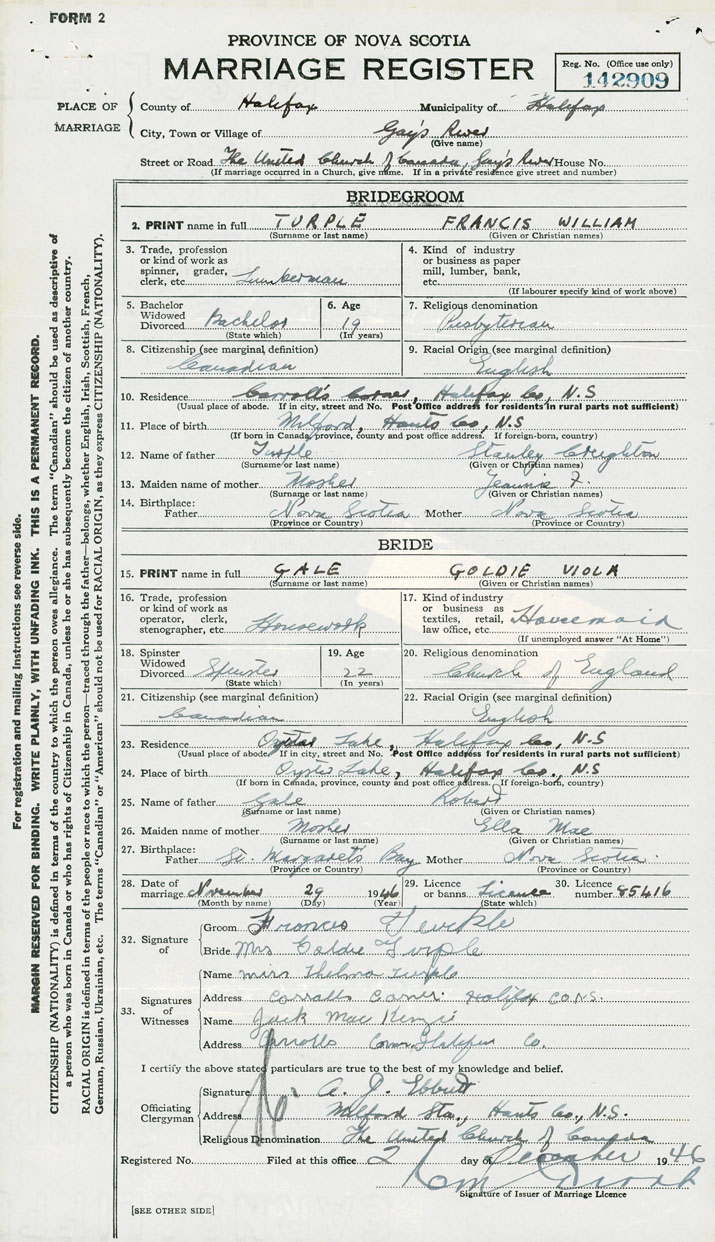 FORM 2
PROVINCE OF NOVA SCOTIA
MARRIAGE REGISTER
Reg. No. (Office use only)
142909
PLACE OF MARRIAGE
County of Halifax Municipality of Halifax
City, Town or Village of Gay's River
(Give name)
Street or Road The United Church of Canada, Gay's River House No.
(If marriage occurred in a Church, give name. If in a private residence give street and number)
BRIDEGROOM
2. PRINT name in full TURPLE FRANCIS WILLIAM
(Surname or last name) (Given or Christian names)
3. Trade, profession or kind of work as spinner, grader, clerk, etc. Lumberman
4. Kind of industry or business as paper mill, lumber, bank, etc.
(If labourer specify kind of work above)
5. Bachelor Widowed Divorced Bachelor
(State which)
6. Age 19
(In years)
7. Religious denomination
Presbyterian
8. Citizenship (see marginal definition)
Canadian
9. Racial Origin (see marginal definition)
English
10. Residence Carroll's Corner, Halifax Co, N.S
(Usual place of abode. If in city, street and No. Post Office address for residents in rural parts not sufficient)
11. Place of birth Milford, Hants Co, N.S
(If born in Canada, province, county and post office address. If foreign-born, country)
12. Name of father Turple Stanley Creighton
(Surname or last name) (Given or Christian names)
13. Maiden name of mother Mosher Jeannie F.
(Surname or last name) (Given or Christian names)
14. Birthplace: Father Nova Scotia Mother Nova Scotia
(Province or Country) (Province or Country)
BRIDE
15. PRINT name in full GALE GOLDIE VIOLA
(Surname or last name) (Given or Christian names)
16. Trade, profession or kind of work as operator, clerk, stenographer, etc. Housework
17. Kind of industry or business as textiles, retail, law office, etc. Housemaid
(If unemployed answer "At Home")
18. Spinster Widowed Divorced Spinster
(State which)
19. Age 22
(In years)
20. Religious denomination
Church of England
21. Citizenship (see marginal definition)
Canadian
22. Racial Origin (see marginal definition)
English
23. Residence Oyster Lake, Halifax Co, N.S
(Usual place of abode. If in city, street and No. Post Office address for residents in rural parts not sufficient)
24. Place of birth Oyster Lake, Halifax Co., N.S
(If born in Canada, province, county and post office address. If foreign-born, country)
25. Name of father Gale Robert
(Surname or last name) (Given or Christian names)
26. Maiden name of mother Mosher Ella Mae
(Surname or last name) (Given or Christian names)
27. Birthplace: Father St. Margaret's Bay Mother Nova Scotia
(Province or Country) (Province or Country)
28. Date of marriage November 29 1946 29. Licence or banns Licence 30. Licence number 85416
(Month by name) (Day) (Year) (State which)
32. Signature of
Groom Frances Turple
Bride Mrs Goldie Turple
33. Signatures of Witnesses
Name Miss Thelma Turple
Address Carrolls Corner Halifax CO N.S.
Name Jack MacKenzie
Address Carrolls Corner Halifax Co.
I certify the above stated particulars are true to the best of my knowledge and belief.
Officiating Clergyman
Signature A. J. Ebbutt
Address Milford Sta., Hants Co., N.S.
Religious Denomination The United Church of Canada
Registered No. Filed at this office 2 day of December 1946
Signature of Issuer of Marriage Licence
[SEE OTHER SIDE]
For registration and mailing instructions see reverse side.
MARGIN RESERVED FOR BINDING. WRITE PLAINLY, WITH UNFADING INK. THIS IS A PERMANENT RECORD.
CITIZENSHIP (NATIONALITY) is defined in terms of the country to which the person owes allegiance. The term "Canadian" should be used as descriptive of
a person who was born in Canada or who has rights of Citizenship in Canada, unless he or she has subsequently become the citizen of another country.
RACIAL ORIGIN is defined in terms of the people or race to which the person—traced through the father—belongs, whether English, Irish, Scottish, French,
German, Russian, Ukrainian, etc. The terms "Canadian" or "American" should not be used for RACIAL ORIGIN, as they express CITIZENSHIP (NATIONALITY).